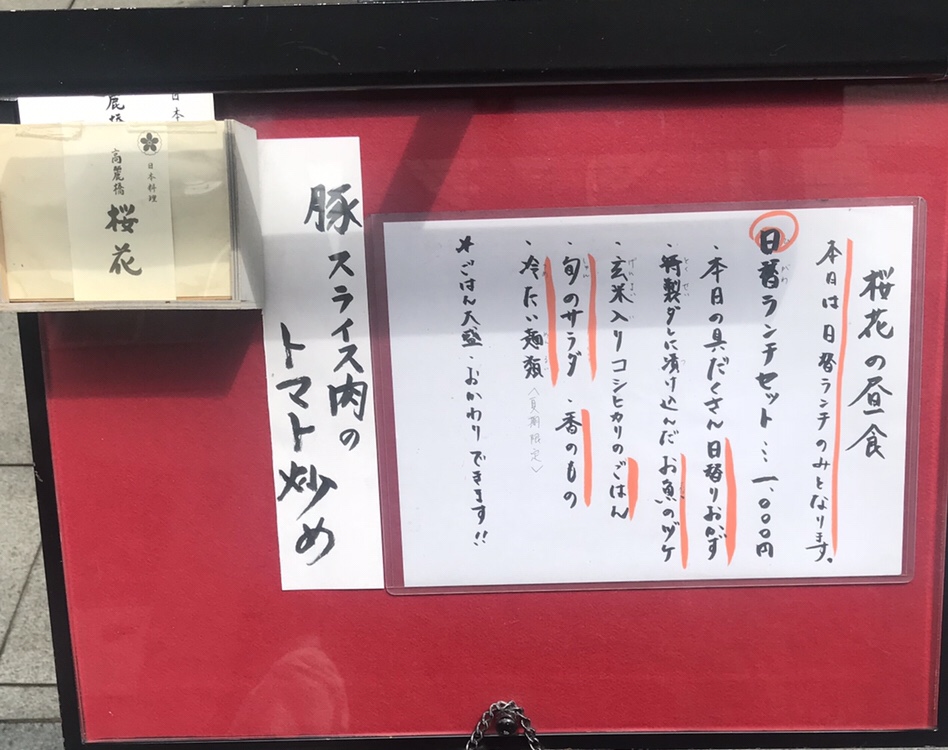 桜花の昼食
本日は日替ランチのみとなります。
日替ランチセット…一、〇〇〇円
・本日の具だくさん日替りおかず
・特製ダレに漬け込んだお魚のヅケ
・玄米入りコシヒカリのごはん
・旬のサラダ ・香のもの
・冷たい麺類〈夏期限定〉
*ごはん大盛・おかわりできます!!
豚スライス肉の
トマト炒め
日本料理
高麗橋 桜花
日本